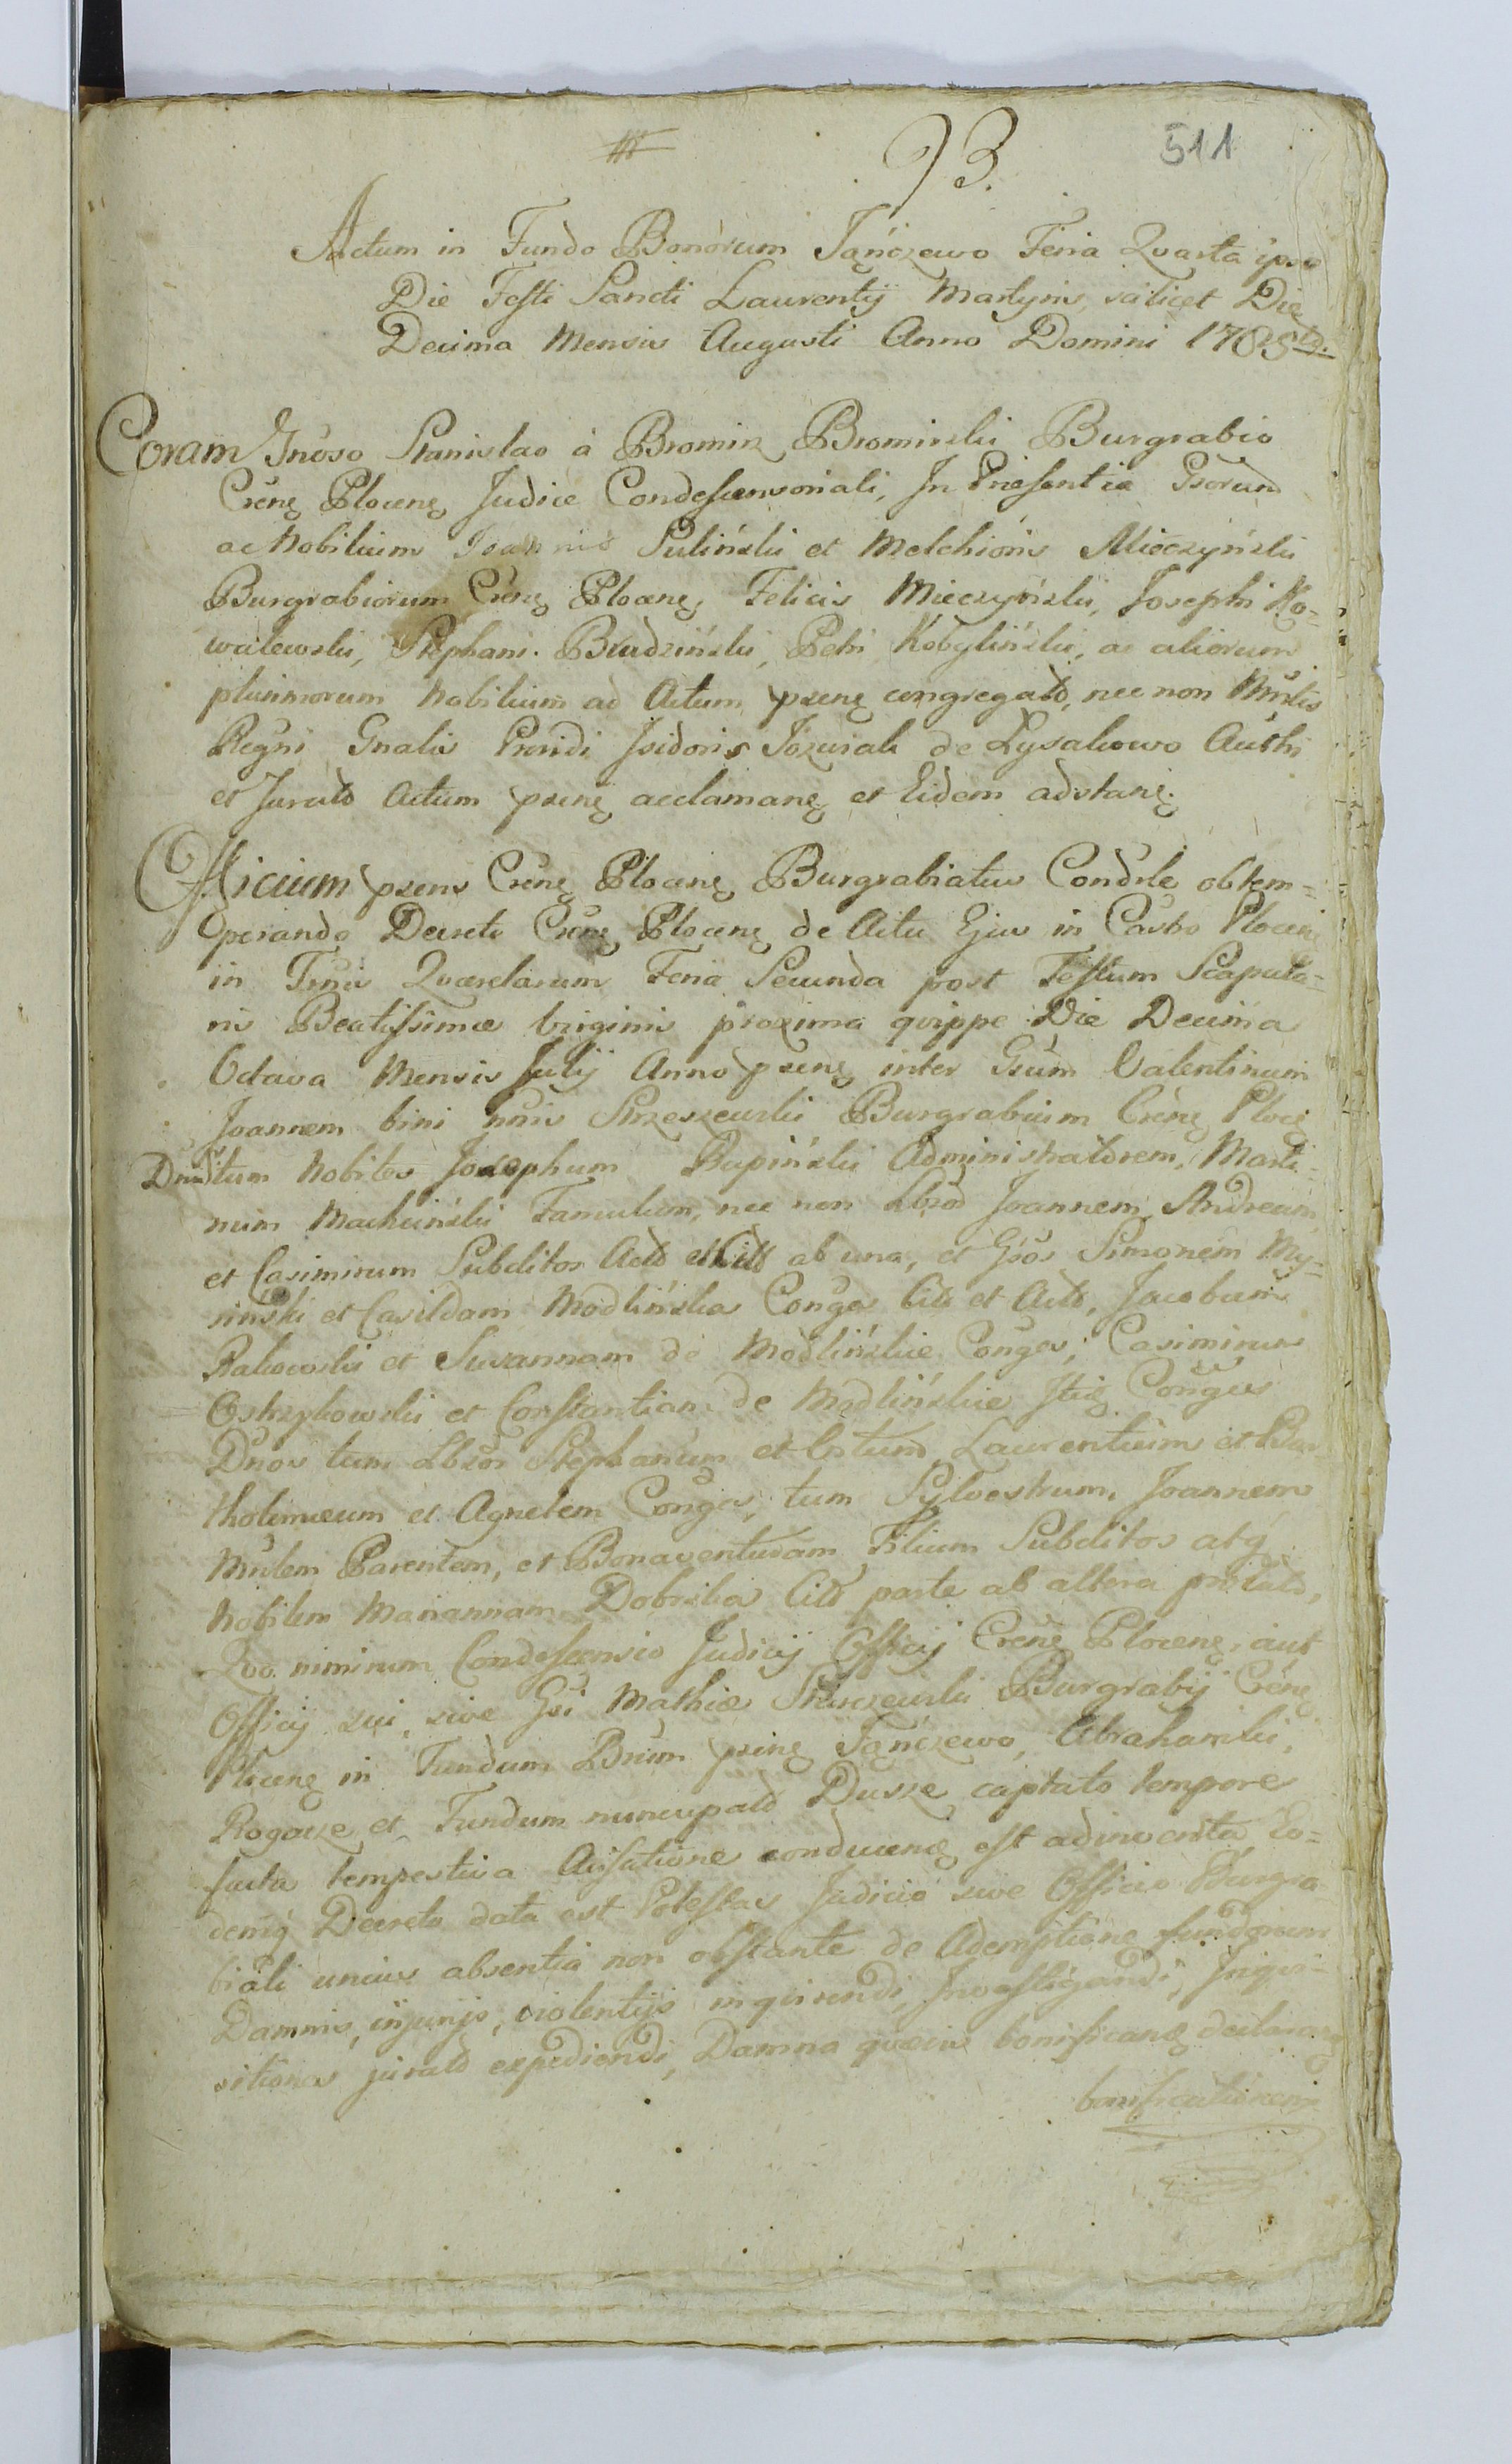 93.
511
Actum in Fundo Bonorum Jąńczewo Feria Qvarta ipso
Die Festi Sancti Laurentij Martyris, scilicet Die
Decima Mensis Augusti Anno Domini
Coram Gnoso Stanislao à Bromirz Bromirski Burgrabio
Crenę Plocenę Judice Condescensoriali, In Præsentia Gsorum
ac Nobilium Joannis Puliński et Melchioris Mieczyński
Burgrabiorum Crenę Plocenę, Felicis Mieczyński, Josephi Ko=
walewski, Stephani Brudziński, Petri Kobyliński, ac aliorum
plurimorum Nobilium ad Actum psenę congregato, nec non Mnrlis
Regni Gnalis Providi Isidoris Józwiak de Lysakowo Auth
et Jurato Actum psenę acclamanę et Eidem adstanę.
Officium psens Crenę Plocenę Burgrabiatus Condsle obtem=
perando Decreto Crenę Plocenę de Actu Ejus in Castro Plocen
in Trnis Qværelarum Feria Secunda post Festum Scapula=
ris Beatissimæ Virginis proxima qvippe Die Decima
Octava Mensis Julij Anno psenę inter Gsum Valentinum
Joannem bini nnis Strzeszewski Burgrabium Crenę Ploce
tum Nobiles Josephum Rupiński Administratorem, Marti=
num Machciński Famulum, nec non Lbsos Joannem, Andream,
et Casimirum Subditos Acto et Cito ab una, et Gsos Simonem My=
et Casildam Modlińska Conges Cito et Acto, Jacobum
Rakowski et Susannam de Modlińskie Conges; Casimirum
Ostrzykowski et Constantiam de Modlińskie Itię Conges
Dnos tum Lbsos Stephanum et Laurentium et Bar
tholomæum et Agnetem Conges, tum Sylvestrum, Joannem
Mnlem Parentem, et Bonaventuram Filium Subditos atq
Nobilem Mariannam Dobrska Cito parte ab altera prolato,
Qvo nimirum Condescensio Judicij Officij Crenę Plocenę, aut
Officij sui, sive Gsi Mathiæ Burgrabij Crenę
Plocenę in Fundum Bnrum psenę Jąńczewo, Abrahamki,
Rogowe et Fundum nuncupato Dusze captato tempore
facta tempestiva Avisatione conducenę est adinventa Eo=
demq Decreto data est Potestas Judicio sive Officio Burgra
biali unius absentia non obstante de Ademptione fundorum
Damnis, injurijs, violentijs inqvirendi, Investigandi, Inqvi=
sitiones jurato expediendi, Damna qvævis bonificanę declarare
bonificationem